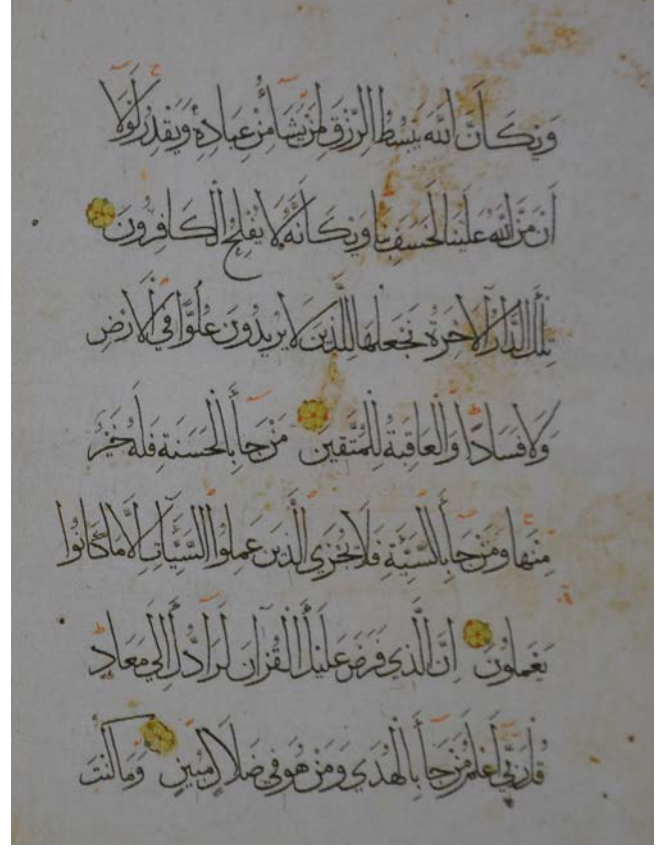 وَيْكَاَنَّ اللّٰهَ يَبْسُطُ الرِّزْقَ لِمَنْ يَشَآ مِنْ عِبَادِهٖ وَيَقْدِرُ لَوْلَا
اَنْ مَنَّ اللّٰهُ عَلَيْنَا لَخَسَفَ بِنَا وَيْكَاَنَّهُ لَا يُفْلِحُ الْكَافِرُونَ
تِلْكَ الدَّارُ الْاٰخِرَةُ نَجْعَلُهَا لِلَّذِينَ لَا يُرِيدُونَ عُلُوًّا فِي الْاَرْضِ
وَلَا فَسَادًا وَالْعَاقِبَةُ لِلْمُتَّقِينَ مَنْ جَآ بِالْحَسَنَةِ فَلَهُ خَيْرٌ
مِنْهَا وَمَنْ جَآ بِالسَّيِّئَةِ فَلَا يُجْزَي الَّذِينَ عَمِلُوا السَّيِّاٰتِ اِلَّا مَا كَانُوا
يَعْمَلُونَ اِنَّ الَّذِي فَرَضَ عَلَيْكَ الْقُرْاٰنَ لَرَادُّكَ اِلَي مَعَادٍ
قُلْ رَبِّي اَعْلَمُ مَنْ جَآ بِالْهُدَي وَمَنْ هُوَ فِي ضَلَالٍ مُبِينٍ وَمَا كُنْتَ